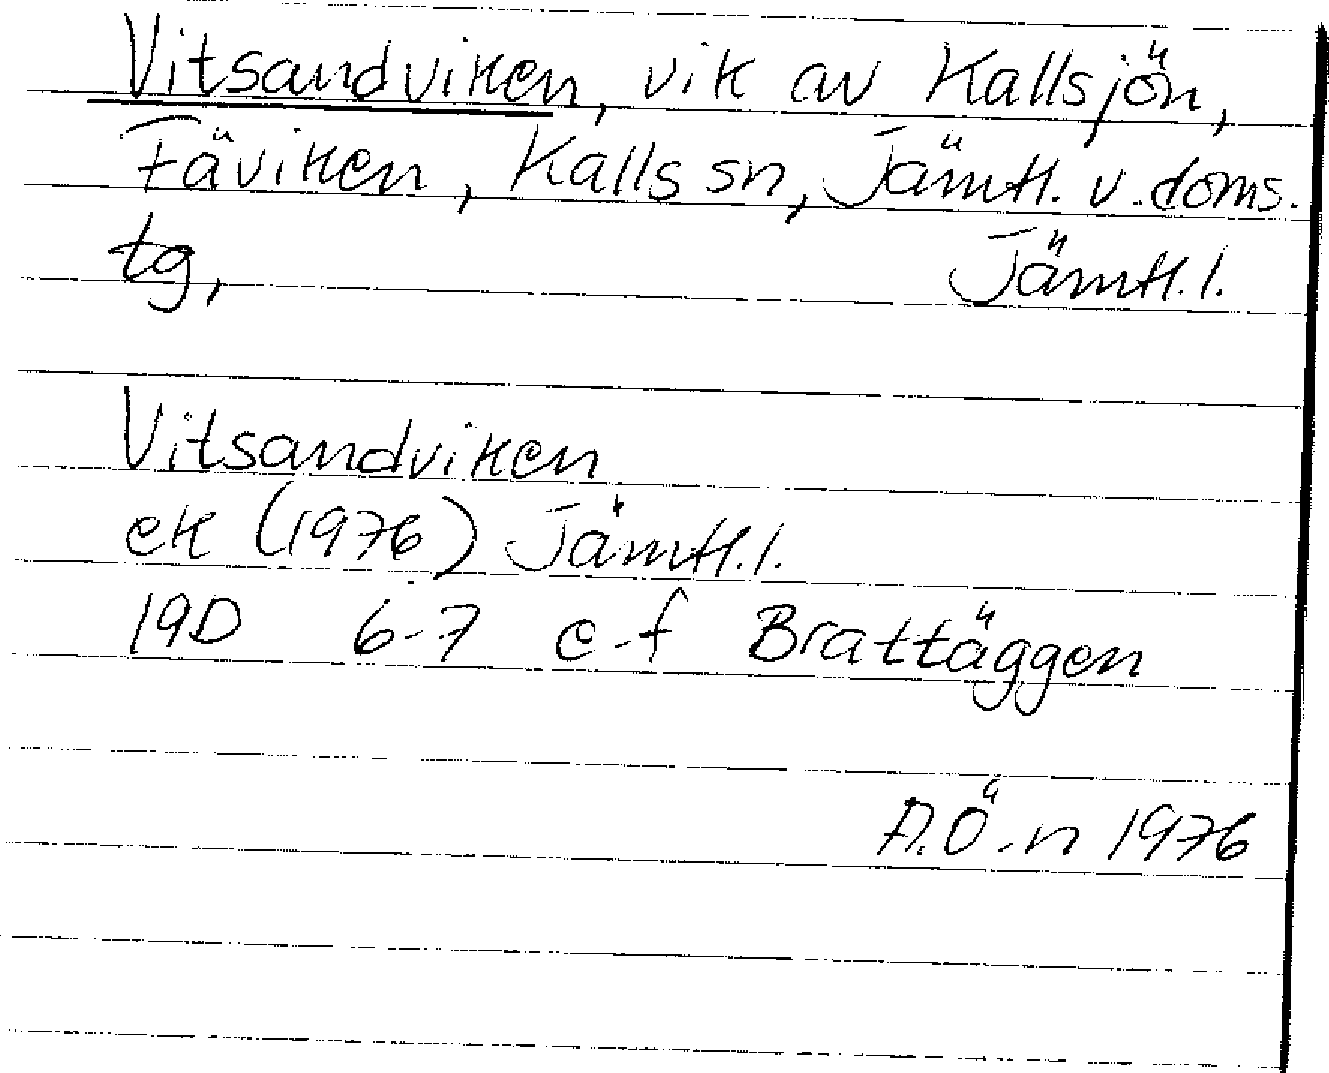 Vitsandviken, vik av Kallsjön,
Fäviken, Kalls sn, Jämtl. v. doms.
tg, Jämtl. l.
Vitsandviken
ek (1976) Jämtl. l.
19D 6-7 e-f Brattäggen
A.Ö-n 1976